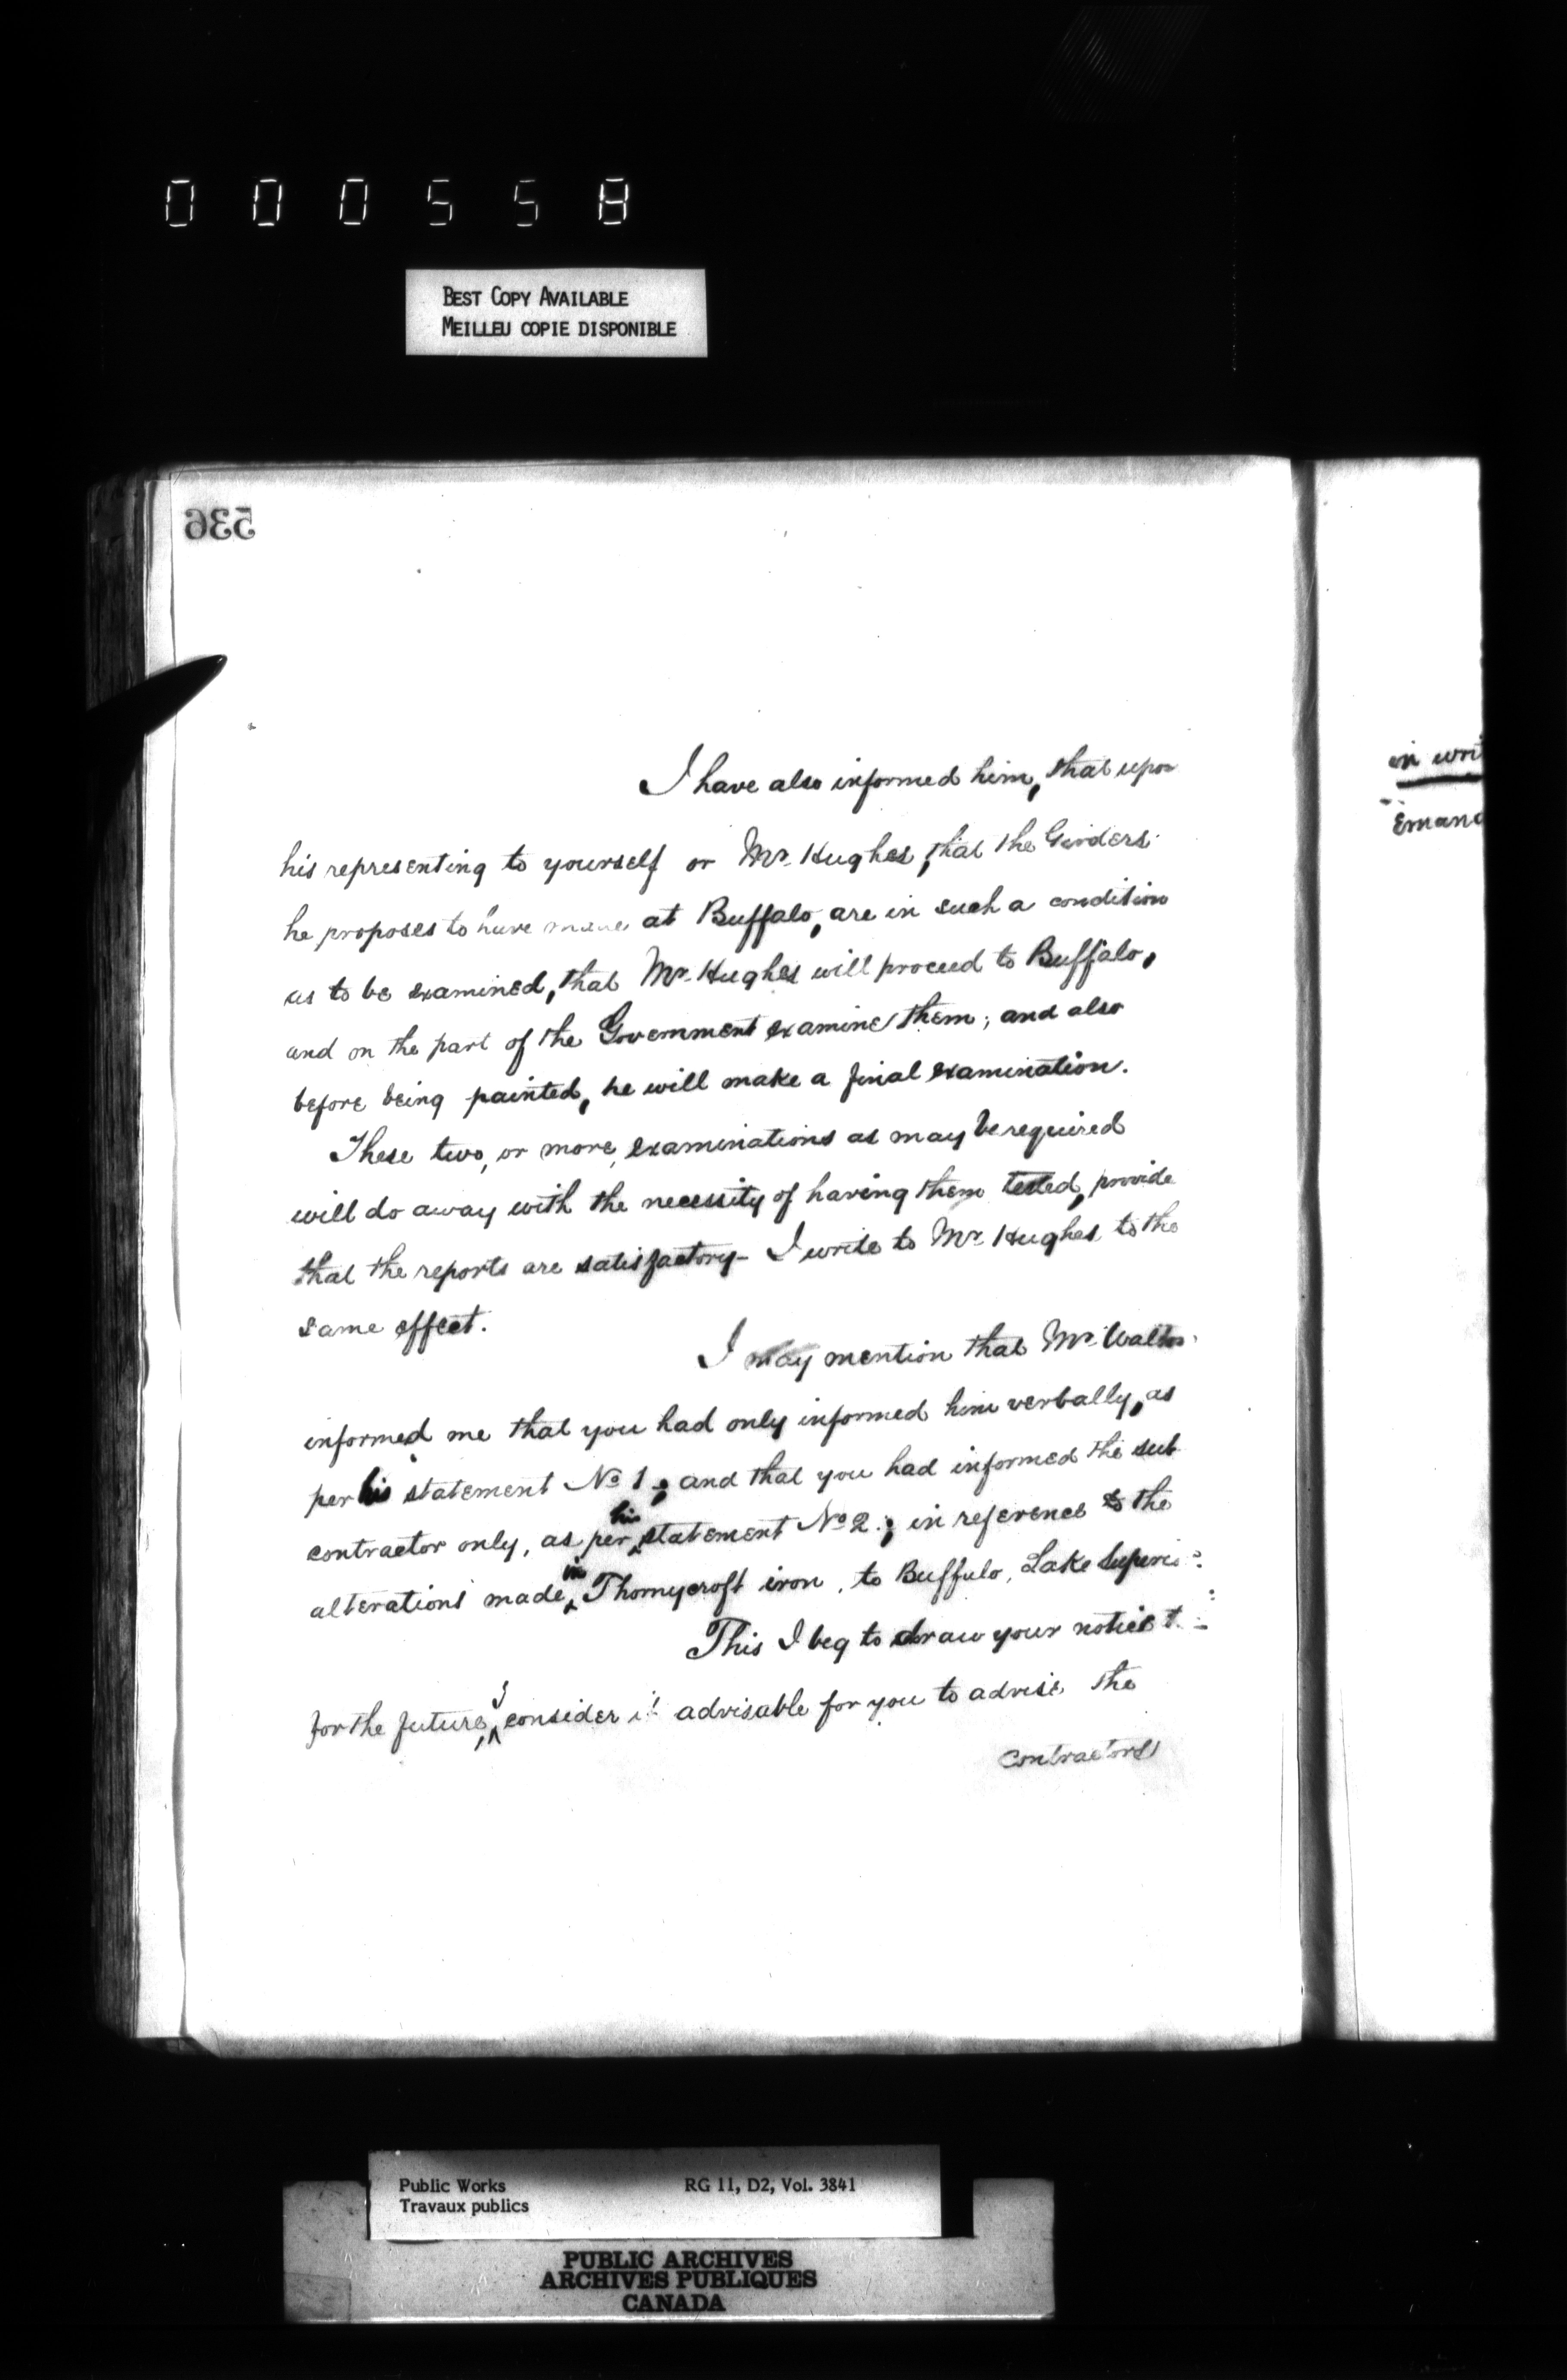 000558
BEST COPY AVAILABLE
MEILLEU COPIE DISPONIBLE
536
I have also informed him, that upon
his representing to yourself or Mr. Hughes, that the Girders
he proposes to have made at Buffalo, are in such a condition
as to be examined, that Mr. Hughes will proceed to Buffalo,
and on the part of the Government examine them; and also
before being painted, he will make a final examination.
These two, or more, examinations as may be required
will do away with the necessity of having them tested, provide
that the reports are satisfactory - I write to Mr. Hughes to the
same effect.
I may mention that Mr. Walton
informed me that you had only informed him verbally, as
per his statement No 1; and that you had informed the sub
contractor only, as per his statement No 2.; in reference to the
alterations made in Thornycroft iron, to Buffulo, Lake Superi
This I beg to draw your notice t
for the future, I consider it advisable for you to advise the
contractors
in wri
Emand
Public Works
Travaux publics
RG 11, D2, Vol. 3841
PUBLIC ARCHIVES
ARCHIVES PUBLIQUES
CANADA